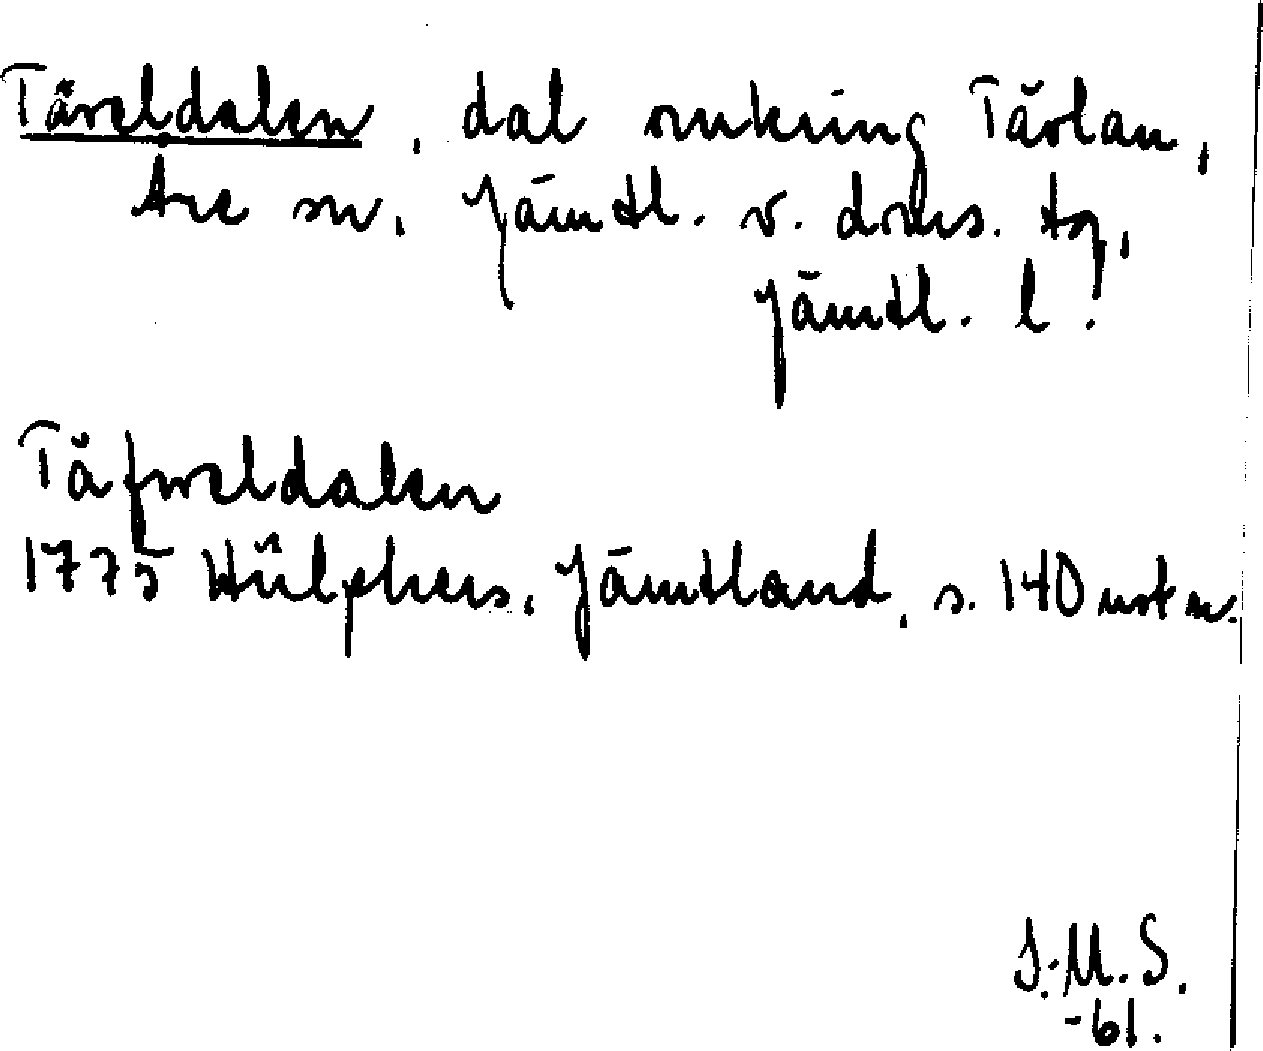 Täveldalen, dal omkring Tävlan,
Åre sn, Jämtl. v. doms. tg,
Jämtl. l.
Täfweldalen
1775 Hülphers, Jämtland, s. 140
I.M.S.
-61.